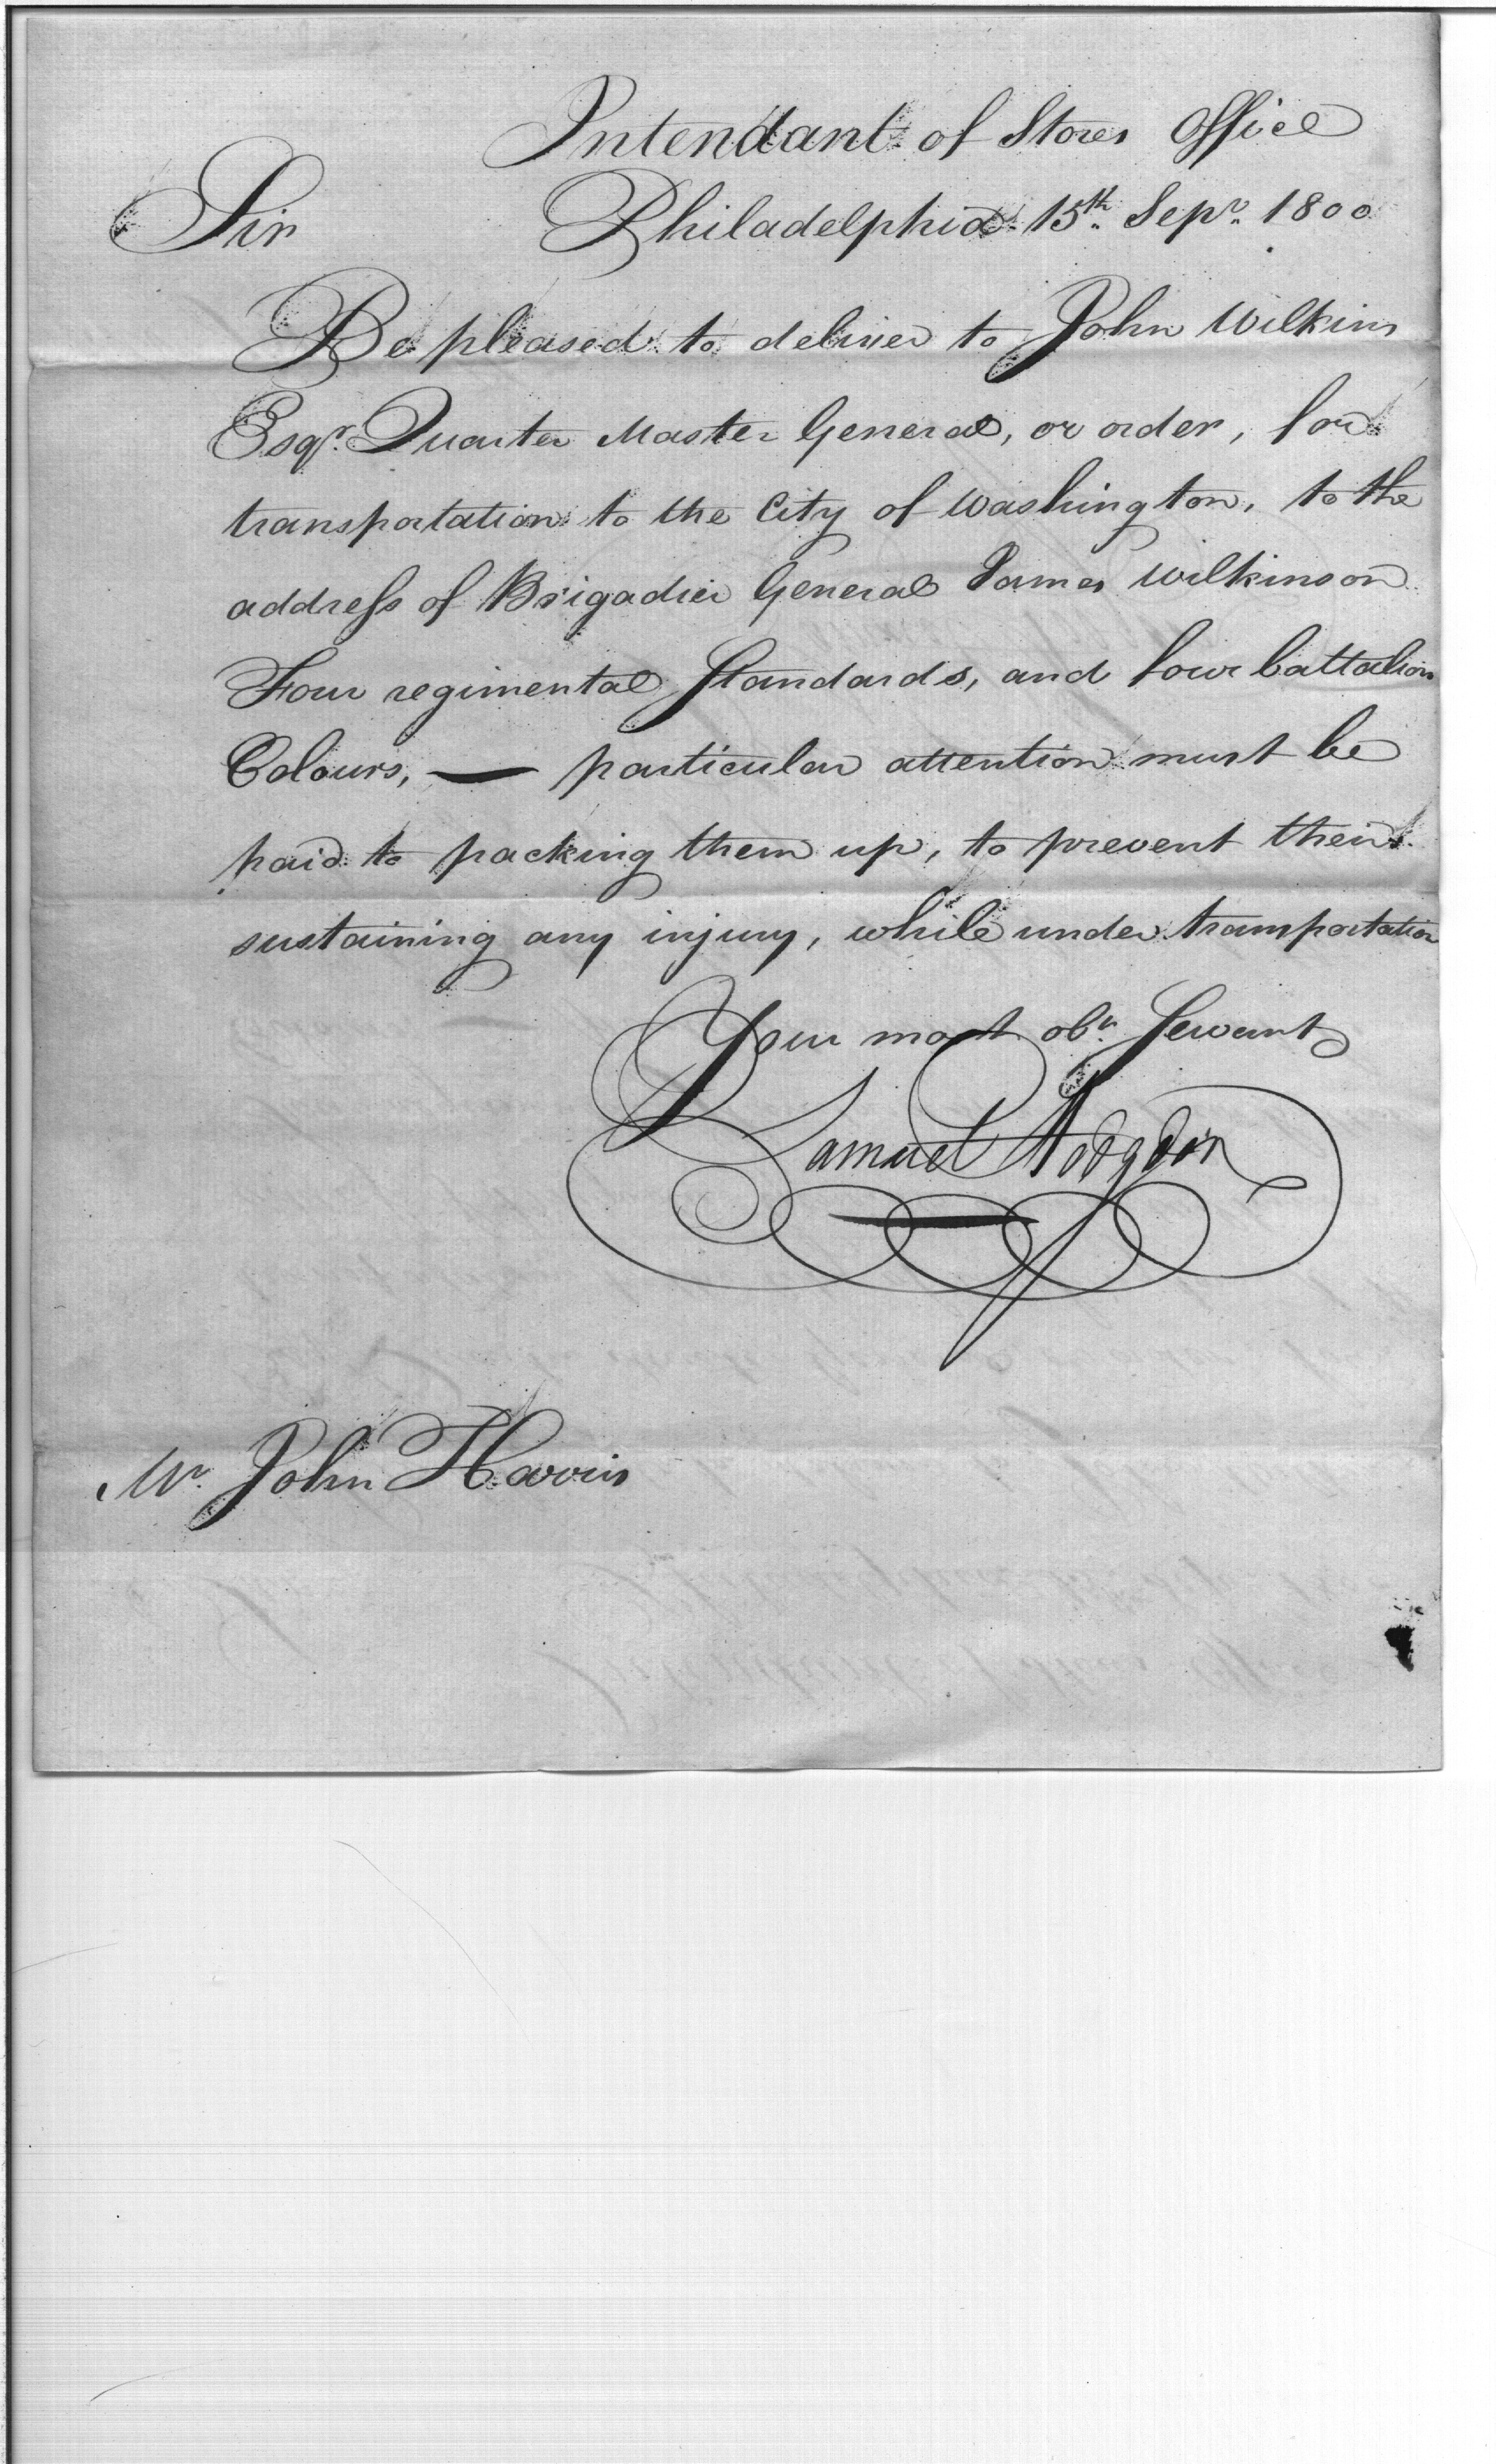 Intendant of Stores Office
Sir Philadelphia 15th. Sepr. 1800
Be pleased to deliver to John Wilkins
Esqr. Quarter Master General, or order, for
transportation to the City of Washington, to the
address of Brigadier General James Wilkinson
Four regimental Standards, and four battalion
Colours, — particular attention must be
paid to packing them up, to prevent their
sustaining any injury, while under transportation
Your most obt. Servant
Samuel Hodgdon
Mr. John Harris